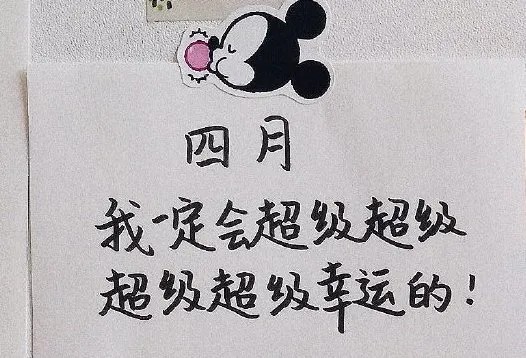 四月
我一定会超级超级
超级超级幸运的!